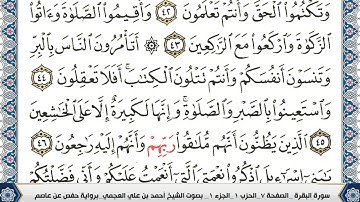 وَتَكْتُمُوا۟ ٱلْحَقَّ وَأَنتُمْ تَعْلَمُونَ ٤٢ وَأَقِيمُوا۟ ٱلصَّلَوٰةَ وَءَاتُوا۟
ٱلزَّكَوٰةَ وَٱرْكَعُوا۟ مَعَ ٱلرَّٰكِعِينَ ٤٣ ۞ أَتَأْمُرُونَ ٱلنَّاسَ بِٱلْبِرِّ
وَتَنسَوْنَ أَنفُسَكُمْ وَأَنتُمْ تَتْلُونَ ٱلْكِتَٰبَ ۚ أَفَلَا تَعْقِلُونَ ٤٤
وَٱسْتَعِينُوا۟ بِٱلصَّبْرِ وَٱلصَّلَوٰةِ ۚ وَإِنَّهَا لَكَبِيرَةٌ إِلَّا عَلَى ٱلْخَٰشِعِينَ
٤٥ ٱلَّذِينَ يَظُنُّونَ أَنَّهُم مُّلَٰقُوا۟ رَبِّهِمْ وَأَنَّهُمْ إِلَيْهِ رَٰجِعُونَ ٤٦
يَٰبَنِىٓ إِسْرَٰٓءِيلَ ٱذْكُرُوا۟ نِعْمَتِىَ ٱلَّتِىٓ أَنْعَمْتُ عَلَيْكُمْ وَأَنِّى فَضَّلْتُكُمْ
سورة البقرة _الصفحة ٧ _الحزب ١ _الجزء ١ _ بصوت الشيخ أحمد بن علي العجمي _برواية حفص عن عاصم